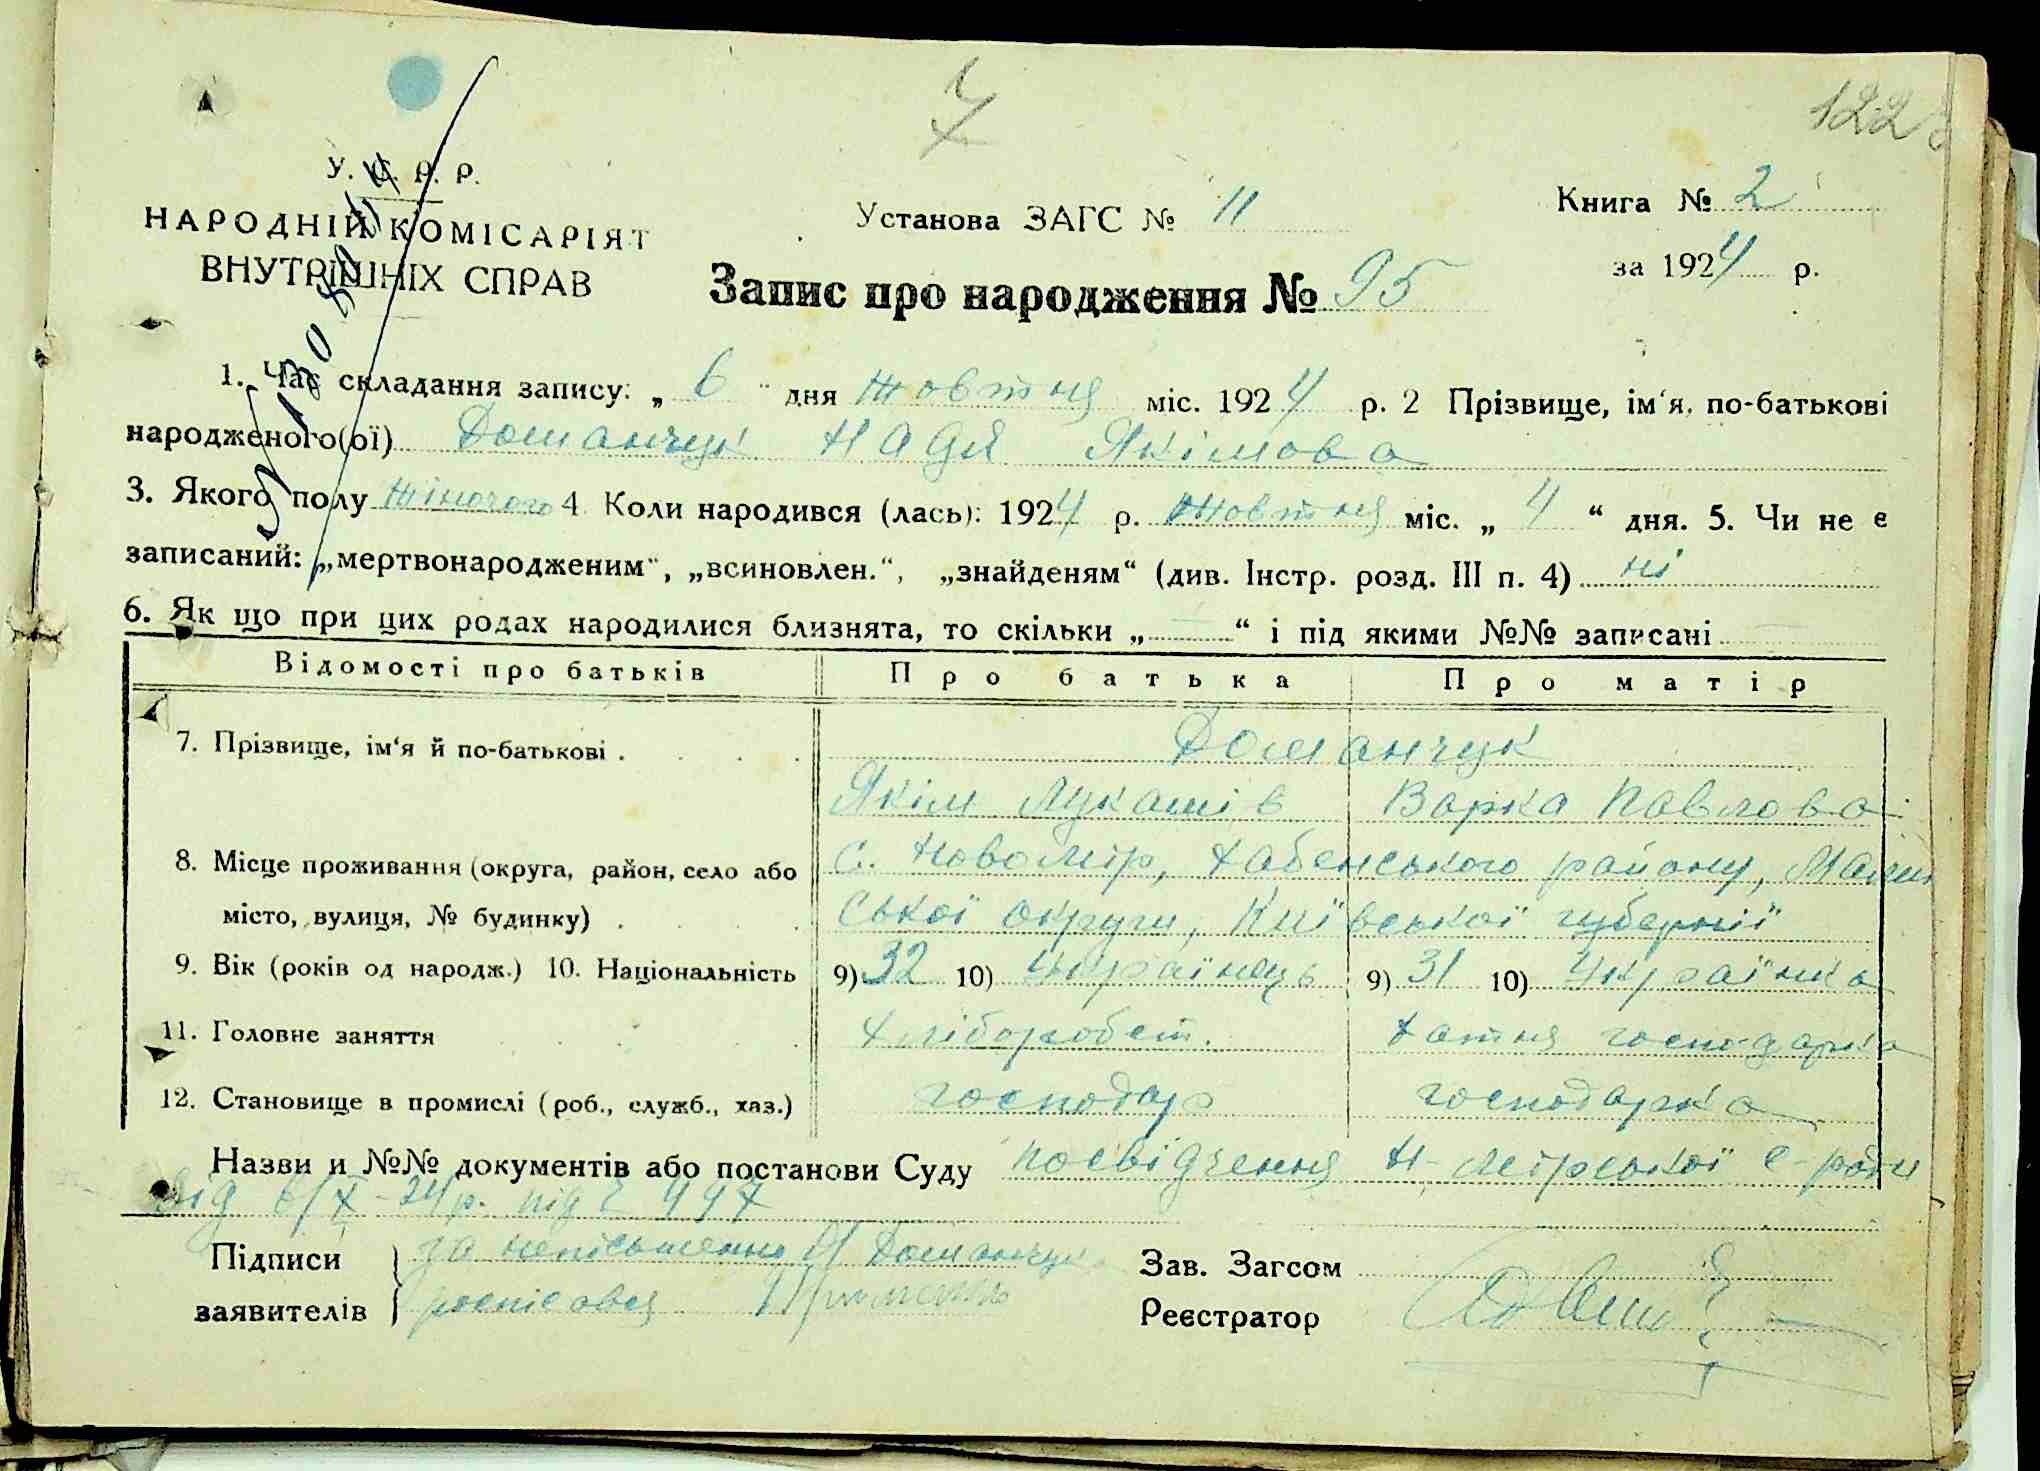 122
У. С. Р. Р.
НАРОДНІЙ КОМІСАРІЯТ
ВНУТРІШНІХ СПРАВ
Установа ЗАГС № 11
Книга № 2
за 1924 р.
Запис про народження № 95
1. Час складання запису: „ 6 " дня жовтня міс. 1924 р. 2 Прізвище, ім‘я, по-батькові
народженого(ої) Доманчук Надя Якімова
3. Якого полу жіночого 4. Коли народився (лась): 1924 р. жовтня міс. „ 4 “ дня. 5. Чи не є
записаний: „мертвонародженим“, „всиновлен.“, „знайденям“ (див. Інстр. розд. III п. 4) ні
6. Як що при цих родах народилися близнята, то скільки „ — “ і під якими №№ записані —
Відомості про батьків Про батька Про матір
7. Прізвище, ім‘я й по-батькові . Доманчук
Якім Лукашів Варка Павлова
8. Місце проживання (округа, район, село або с. Новомір, Хабенського району, Малин
місто, вулиця, № будинку) . ської округи, Київської губернії
9. Вік (років од народж.) 10. Національність 9) 32 10) Українець 9) 31 10) Українка
11. Головне заняття хлібороббст. хатня господарка
12. Становище в промислі (роб., служб., хаз.) господар господарка
Назви и №№ документів або постанови Суду посвідчення Н-Мірської с-ради
від 6/X-24р. під № 497
Підписи за неписьменно Доманчук
заявителів росписався
Зав. Загсом
Реєстратор